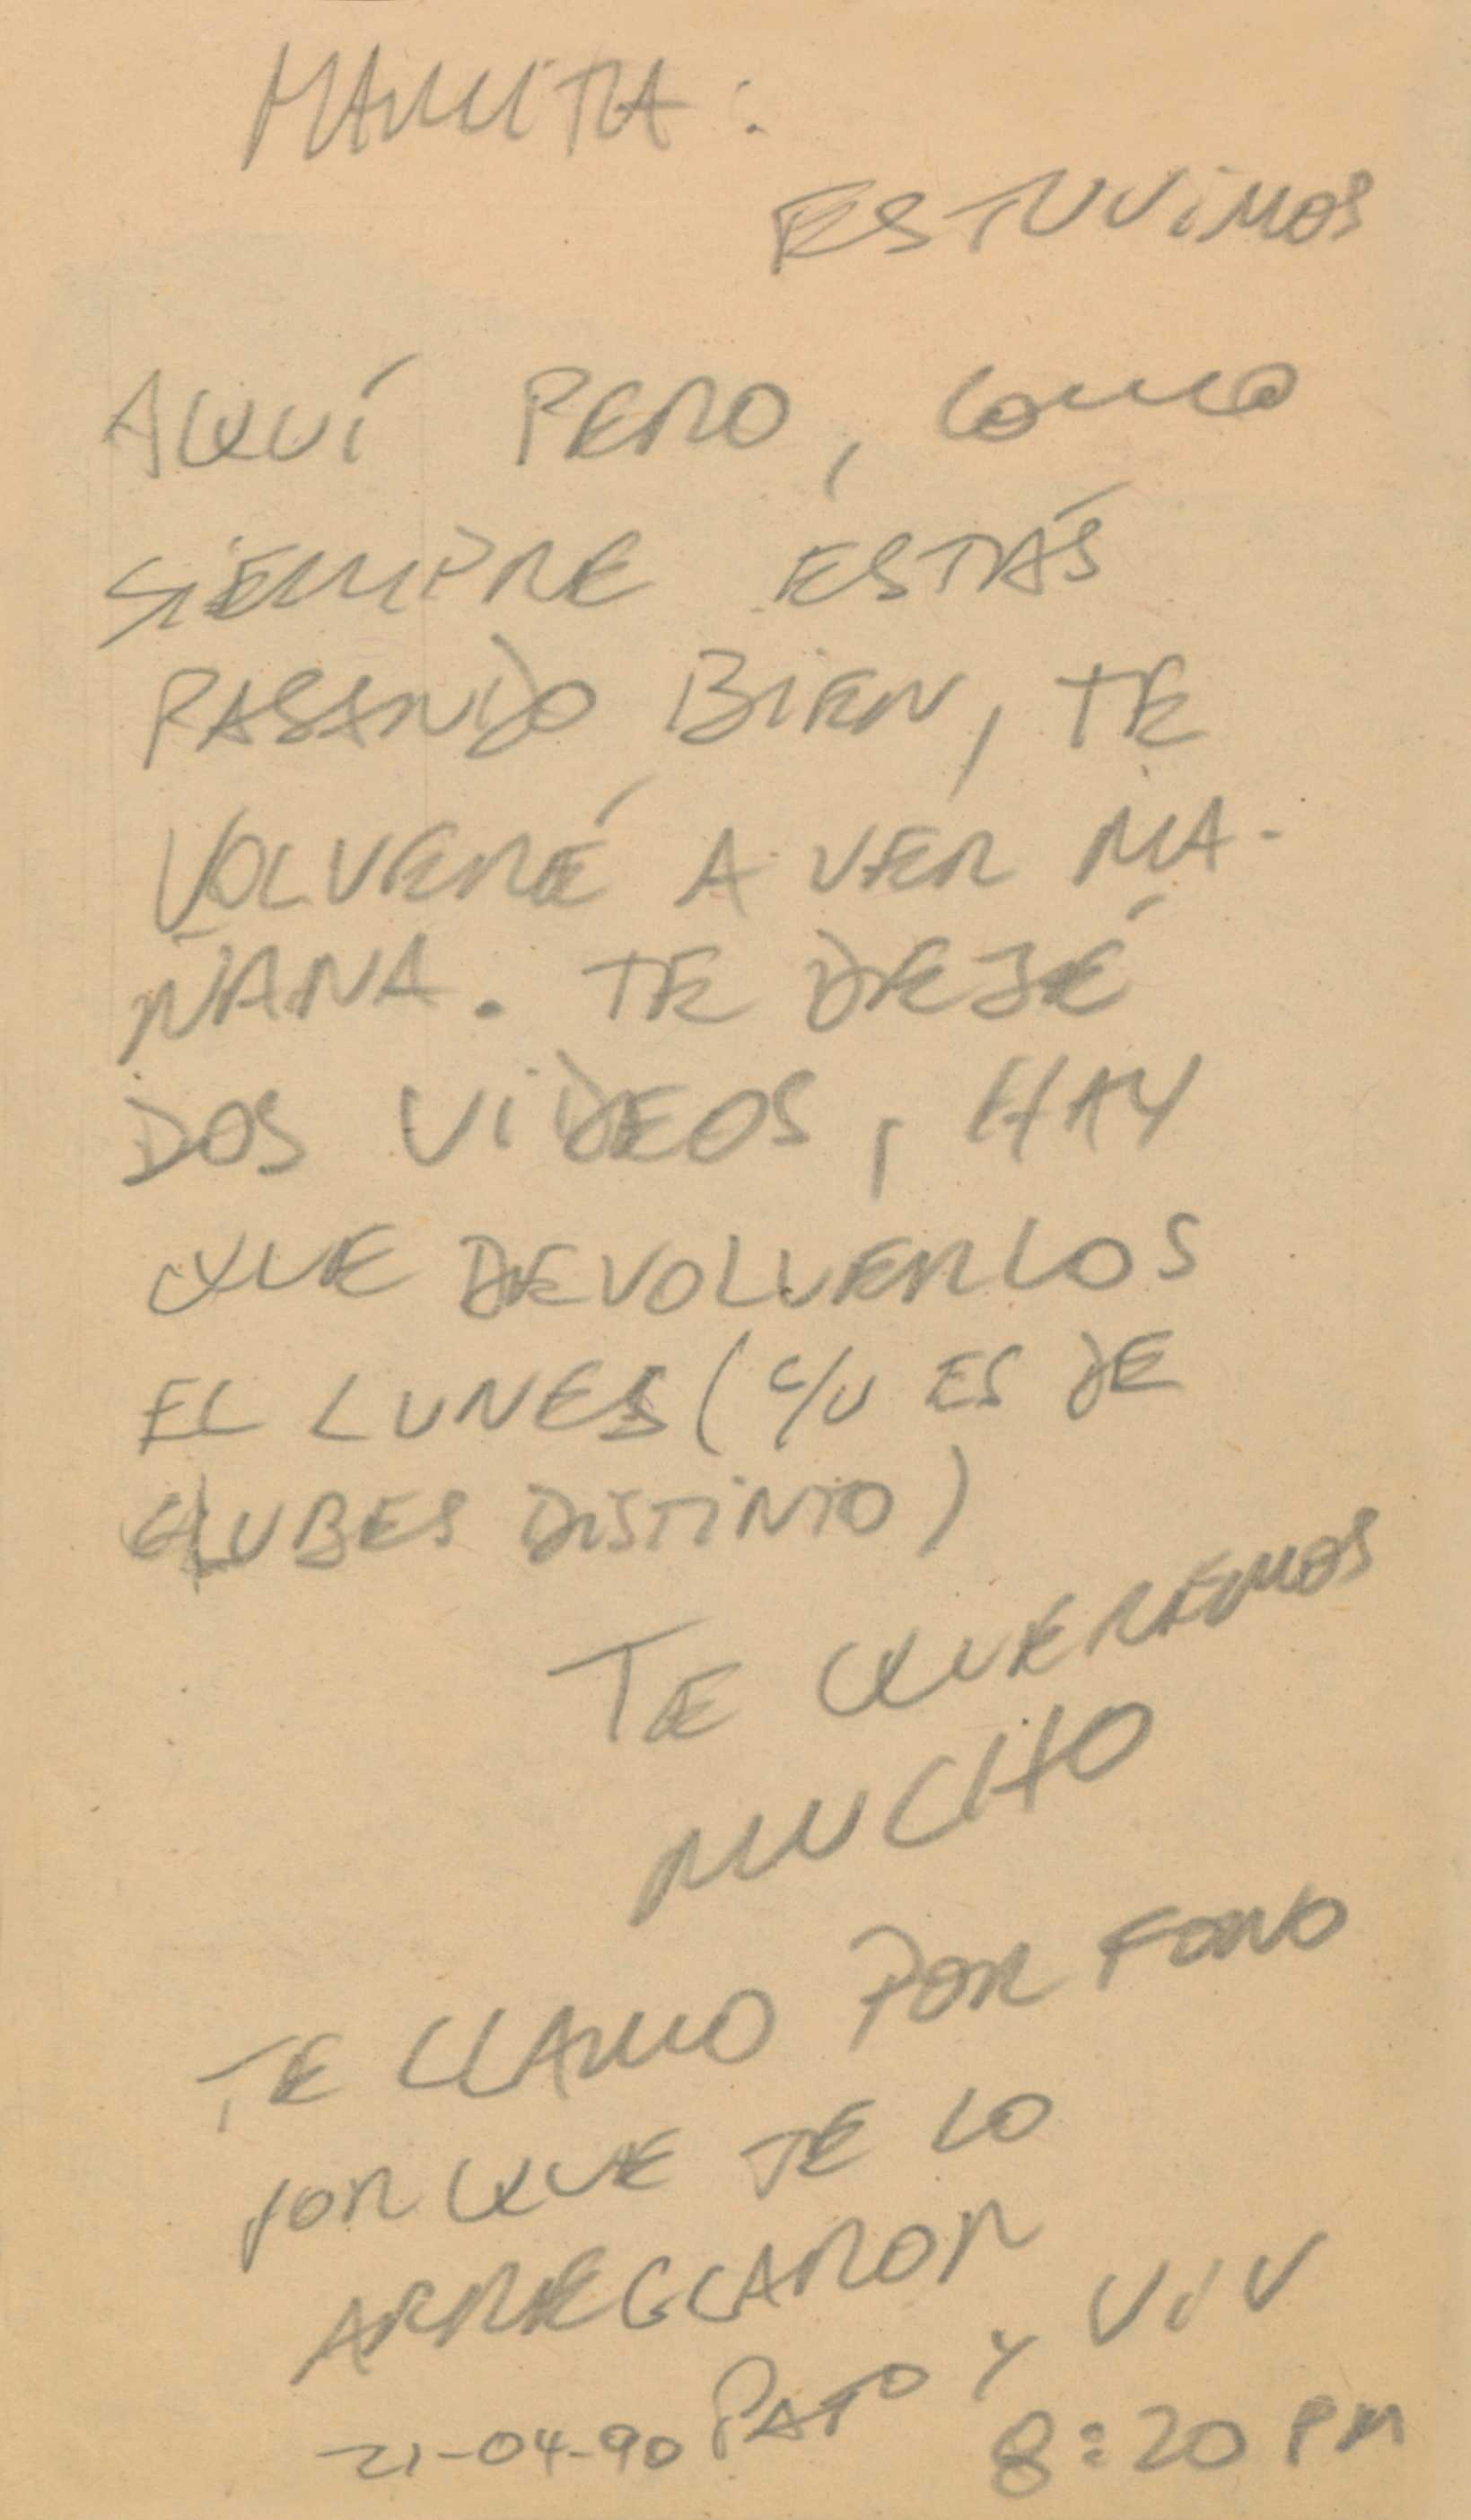 MAMITA:
ESTUVIMOS
AQUÍ PERO, COMO
SIEMPRE ESTÁS
PASANDO BIEN, TE
VOLVERÉ A VER MA-
ÑANA. TE DEJÉ
DOS VIDEOS, HAY
QUE DEVOLVERLOS
EL LUNES (C/U ES DE
CLUBES DISTINTO)
TE QUEREMOS
MUCHO
TE LLAMO POR FONO
PORQUE TE LO
ARREGLARON
PATO Y VIV
21-04-90 8:20 PM